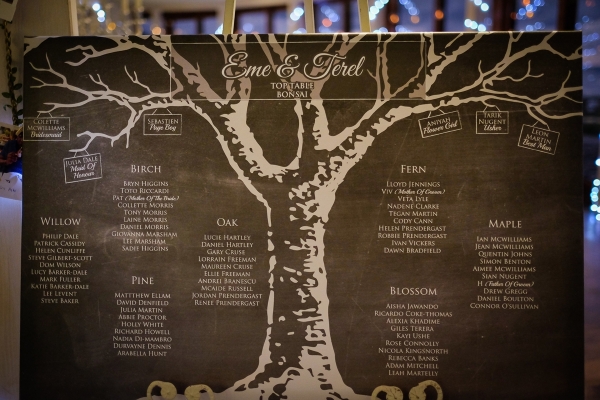 Eme & Terel
TOP TABLE
BONSAI
COLETTE
MCWILLIAMS
Bridesmaid
SEBASTIEN
Page Boy
JULIA DALE
Maid Of
Honour
ANIYAH
Flower Girl
TARIK
NUGENT
Usher
LEON
MARTIN
Best Man
BIRCH
BRYN HIGGINS
TOTO RICCARDI
PAT (Mother Of The Bride)
COLLETTE MORRIS
TONY MORRIS
LAINE MORRIS
DANIEL MORRIS
GIOVANNA MARSHAM
LEE MARSHAM
SADIE HIGGINS
FERN
LLOYD JENNINGS
VIV (Mother Of Groom)
VETA LYLE
NADENE CLARKE
TEGAN MARTIN
CODY CANN
HELEN PRENDERGAST
ROBBIE PRENDERGAST
IVAN VICKERS
DAWN BRADFIELD
WILLOW
PHILIP DALE
PATRICK CASSIDY
HELEN CUNLIFFE
STEVE GILBERT-SCOTT
DOM WILSON
LUCY BARKER-DALE
MARK FULLER
KATIE BARKER-DALE
LEE LEVENT
STEVE BAKER
OAK
LUCIE HARTLEY
DANIEL HARTLEY
GARY CRUSE
LORRAIN FREEMAN
MAUREEN CRUSE
ELLIE FREEMAN
ANDREI BRANESCU
MCADE RUSSELL
JORDAN PRENDERGAST
RENEE PRENDERGAST
MAPLE
IAN MCWILLIAMS
JEAN MCWILLIAMS
QUENTIN JOHNS
SIMON BENTON
AIMEE MCWILLIAMS
SIAN NUGENT
H. (Father Of Groom)
DREW GREGG
DANIEL BOULTON
CONNOR O'SULLIVAN
PINE
MATTHEW ELLAM
DAVID DENFIELD
JULIA MARTIN
ABBIE PROCTOR
HOLLY WHITE
RICHARD HOWELL
NADIA DI-MAMBRO
DURVAYNE DENNIS
ARABELLA HUNT
BLOSSOM
AISHA JAWANDO
RICARDO COKE-THOMAS
ALEXIA KHADIME
GILES TERERA
KAYI USHE
ROSE CONNOLLY
NICOLA KINGSNORTH
REBECCA BANKS
ADAM MITCHELL
LEAH MARTELLY